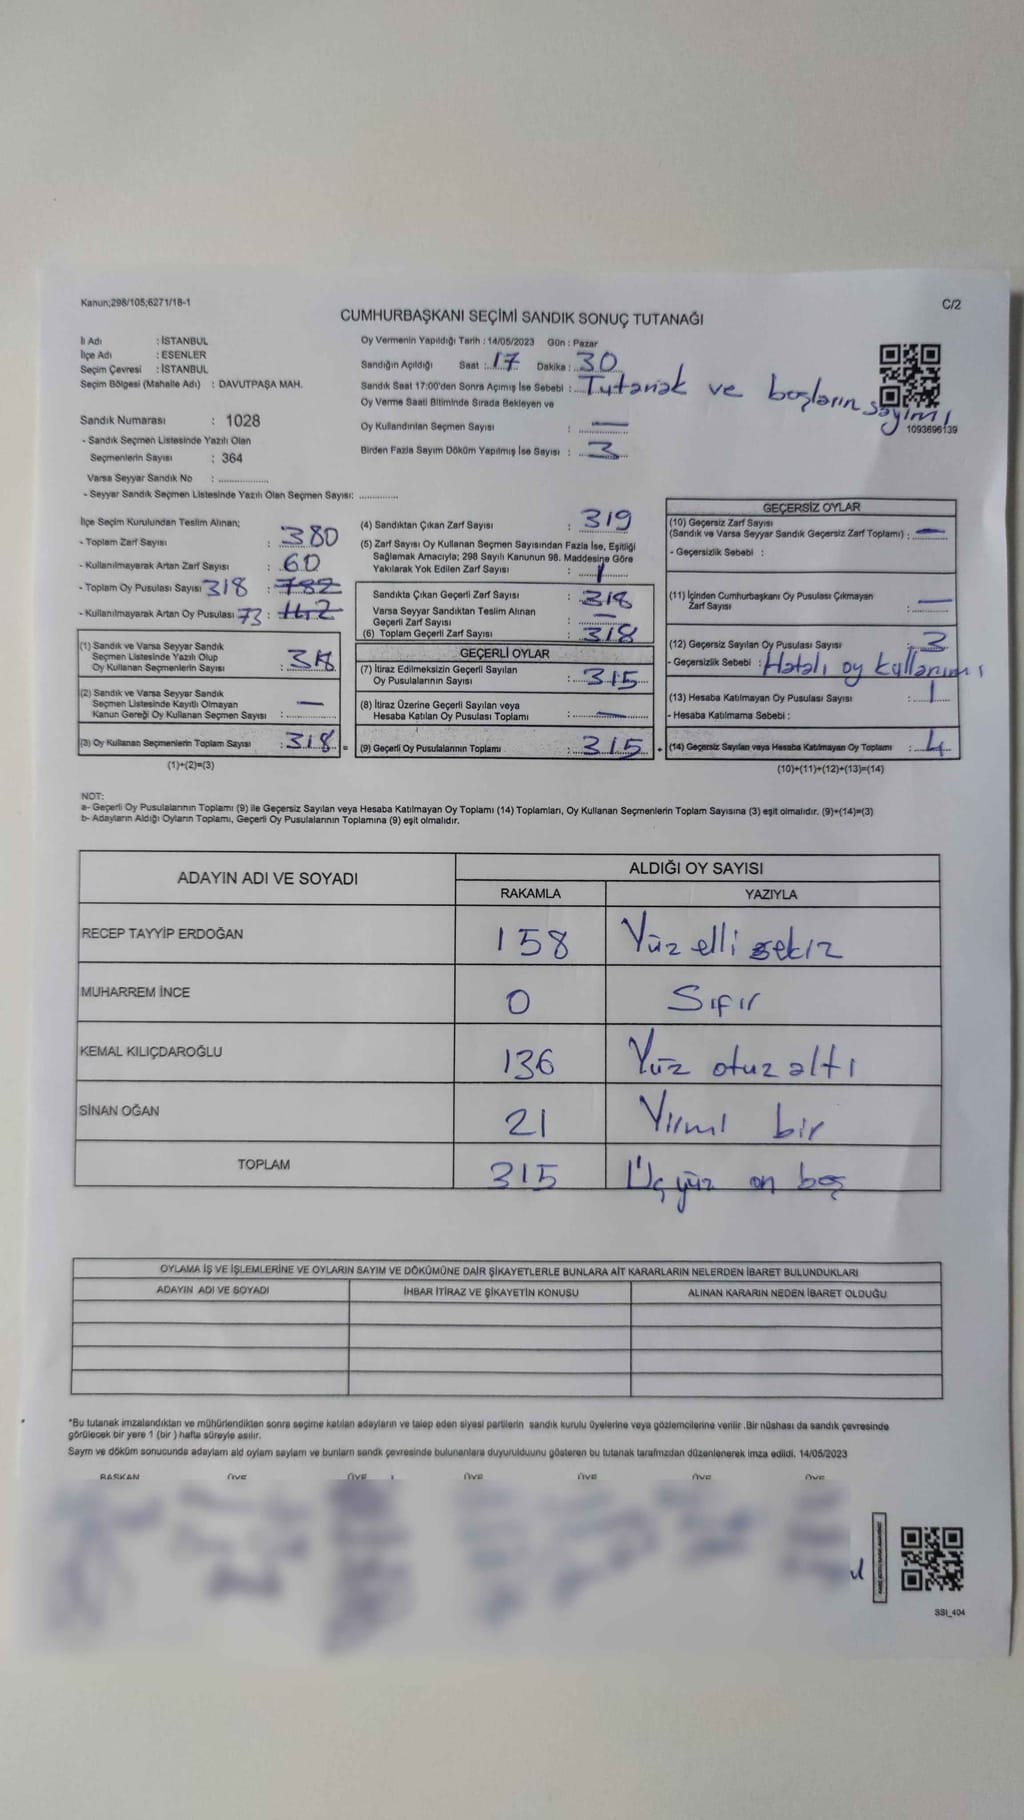 Kanun;298/105;6271/18-1
C/2
CUMHURBAŞKANI SEÇİMİ SANDIK SONUÇ TUTANAĞI
İl Adı : İSTANBUL
İlçe Adı : ESENLER
Seçim Çevresi : İSTANBUL
Seçim Bölgesi (Mahalle Adı) : DAVUTPAŞA MAH.
Sandık Numarası : 1028
- Sandık Seçmen Listesinde Yazılı Olan
Seçmenlerin Sayısı : 364
Varsa Seyyar Sandık No : ...............
- Seyyar Sandık Seçmen Listesinde Yazılı Olan Seçmen Sayısı: ............
Oy Vermenin Yapıldığı Tarih : 14/05/2023 Gün : Pazar
Sandığın Açıldığı Saat : 17 Dakika : 30
Sandık Saat 17:00'den Sonra Açımış İse Sebebi : Tutanak ve boşların sayımı
Oy Verme Saati Bitiminde Sırada Bekleyen ve
Oy Kullandırılan Seçmen Sayısı : —
Birden Fazla Sayım Döküm Yapılmış İse Sayısı : 3
1093696139
İlçe Seçim Kurulundan Teslim Alınan;
- Toplam Zarf Sayısı : 380
- Kullanılmayarak Artan Zarf Sayısı : 60
- Toplam Oy Pusulası Sayısı 318 : 782
- Kullanılmayarak Artan Oy Pusulası 73 : 442
(1) Sandık ve Varsa Seyyar Sandık
Seçmen Listesinde Yazılı Olup
Oy Kullanan Seçmenlerin Sayısı : 318
(2) Sandık ve Varsa Seyyar Sandık
Seçmen Listesinde Kayıtlı Olmayan
Kanun Gereği Oy Kullanan Seçmen Sayısı : —
(3) Oy Kullanan Seçmenlerin Toplam Sayısı : 318 =
(1)+(2)=(3)
(4) Sandıktan Çıkan Zarf Sayısı : 319
(5) Zarf Sayısı Oy Kullanan Seçmen Sayısından Fazla İse, Eşitliği
Sağlamak Amacıyla; 298 Sayılı Kanunun 98. Maddesine Göre
Yakılarak Yok Edilen Zarf Sayısı : 1
Sandıkta Çıkan Geçerli Zarf Sayısı : 318
Varsa Seyyar Sandıktan Teslim Alınan
Geçerli Zarf Sayısı : —
(6) Toplam Geçerli Zarf Sayısı : 318
GEÇERLİ OYLAR
(7) İtiraz Edilmeksizin Geçerli Sayılan
Oy Pusulalarının Sayısı : 315
(8) İtiraz Üzerine Geçerli Sayılan veya
Hesaba Katılan Oy Pusulası Toplamı : —
(9) Geçerli Oy Pusulalarının Toplamı : 315 +
GEÇERSİZ OYLAR
(10) Geçersiz Zarf Sayısı
(Sandık ve Varsa Seyyar Sandık Geçersiz Zarf Toplamı) : —
- Geçersizlik Sebebi :
(11) İçinden Cumhurbaşkanı Oy Pusulası Çıkmayan
Zarf Sayısı : —
(12) Geçersiz Sayılan Oy Pusulası Sayısı : 3
- Geçersizlik Sebebi : Hatalı oy kullanımı
(13) Hesaba Katılmayan Oy Pusulası Sayısı : 1
- Hesaba Katılmama Sebebi :
(14) Geçersiz Sayılan veya Hesaba Katılmayan Oy Toplamı : 4
(10)+(11)+(12)+(13)=(14)
NOT:
a- Geçerli Oy Pusulalarının Toplamı (9) ile Geçersiz Sayılan veya Hesaba Katılmayan Oy Toplamı (14) Toplamları, Oy Kullanan Seçmenlerin Toplam Sayısına (3) eşit olmalıdır. (9)+(14)=(3)
b- Adayların Aldığı Oyların Toplamı, Geçerli Oy Pusulalarının Toplamına (9) eşit olmalıdır.
ADAYIN ADI VE SOYADI ALDIĞI OY SAYISI
RAKAMLA YAZIYLA
RECEP TAYYİP ERDOĞAN 158 Yüz elli sekiz
MUHARREM İNCE 0 Sıfır
KEMAL KILIÇDAROĞLU 136 Yüz otuz altı
SİNAN OĞAN 21 Yirmi bir
TOPLAM 315 Üç yüz on beş
OYLAMA İŞ VE İŞLEMLERİNE VE OYLARIN SAYIM VE DÖKÜMÜNE DAİR ŞİKAYETLERLE BUNLARA AİT KARARLARIN NELERDEN İBARET BULUNDUKLARI
ADAYIN ADI VE SOYADI İHBAR İTİRAZ VE ŞİKAYETİN KONUSU ALINAN KARARIN NEDEN İBARET OLDUĞU
*Bu tutanak imzalandıktan ve mühürlendikten sonra seçime katılan adayların ve talep eden siyasi partilerin sandık kurulu üyelerine veya gözlemcilerine verilir .Bir nüshası da sandık çevresinde
görülecek bir yere 1 (bir ) hafta süreyle asılır.
Sayım ve döküm sonucunda adaylam ald oylam saylam ve bunlam sandk çevresinde bulunanlara duyurulduunu gösteren bu tutanak tarafmzdan düzenlenerek imza edildi. 14/05/2023
BAŞKAN ÜYE ÜYE ÜYE ÜYE ÜYE ÜYE
SSI_404